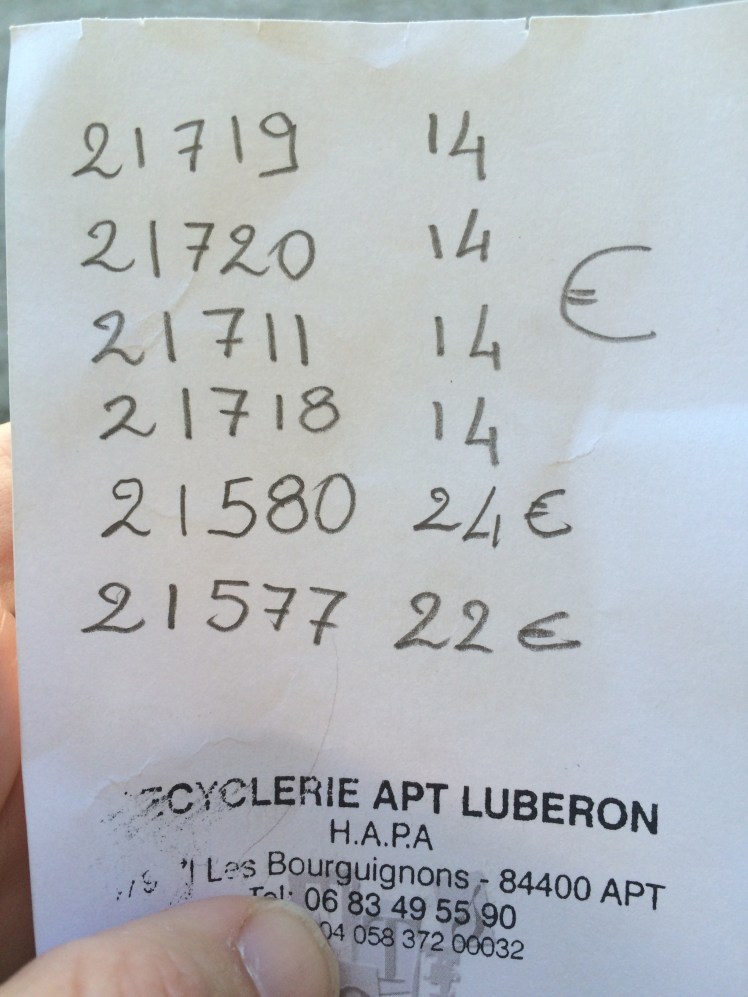 21719 14
21720 14
€
21711 14
21718 14
21580 24€
21577 22€
ECYCLERIE APT LUBERON
H.A.P.A
Les Bourguignons - 84400 APT
Tel: 06 83 49 55 90
04 058 372 00032